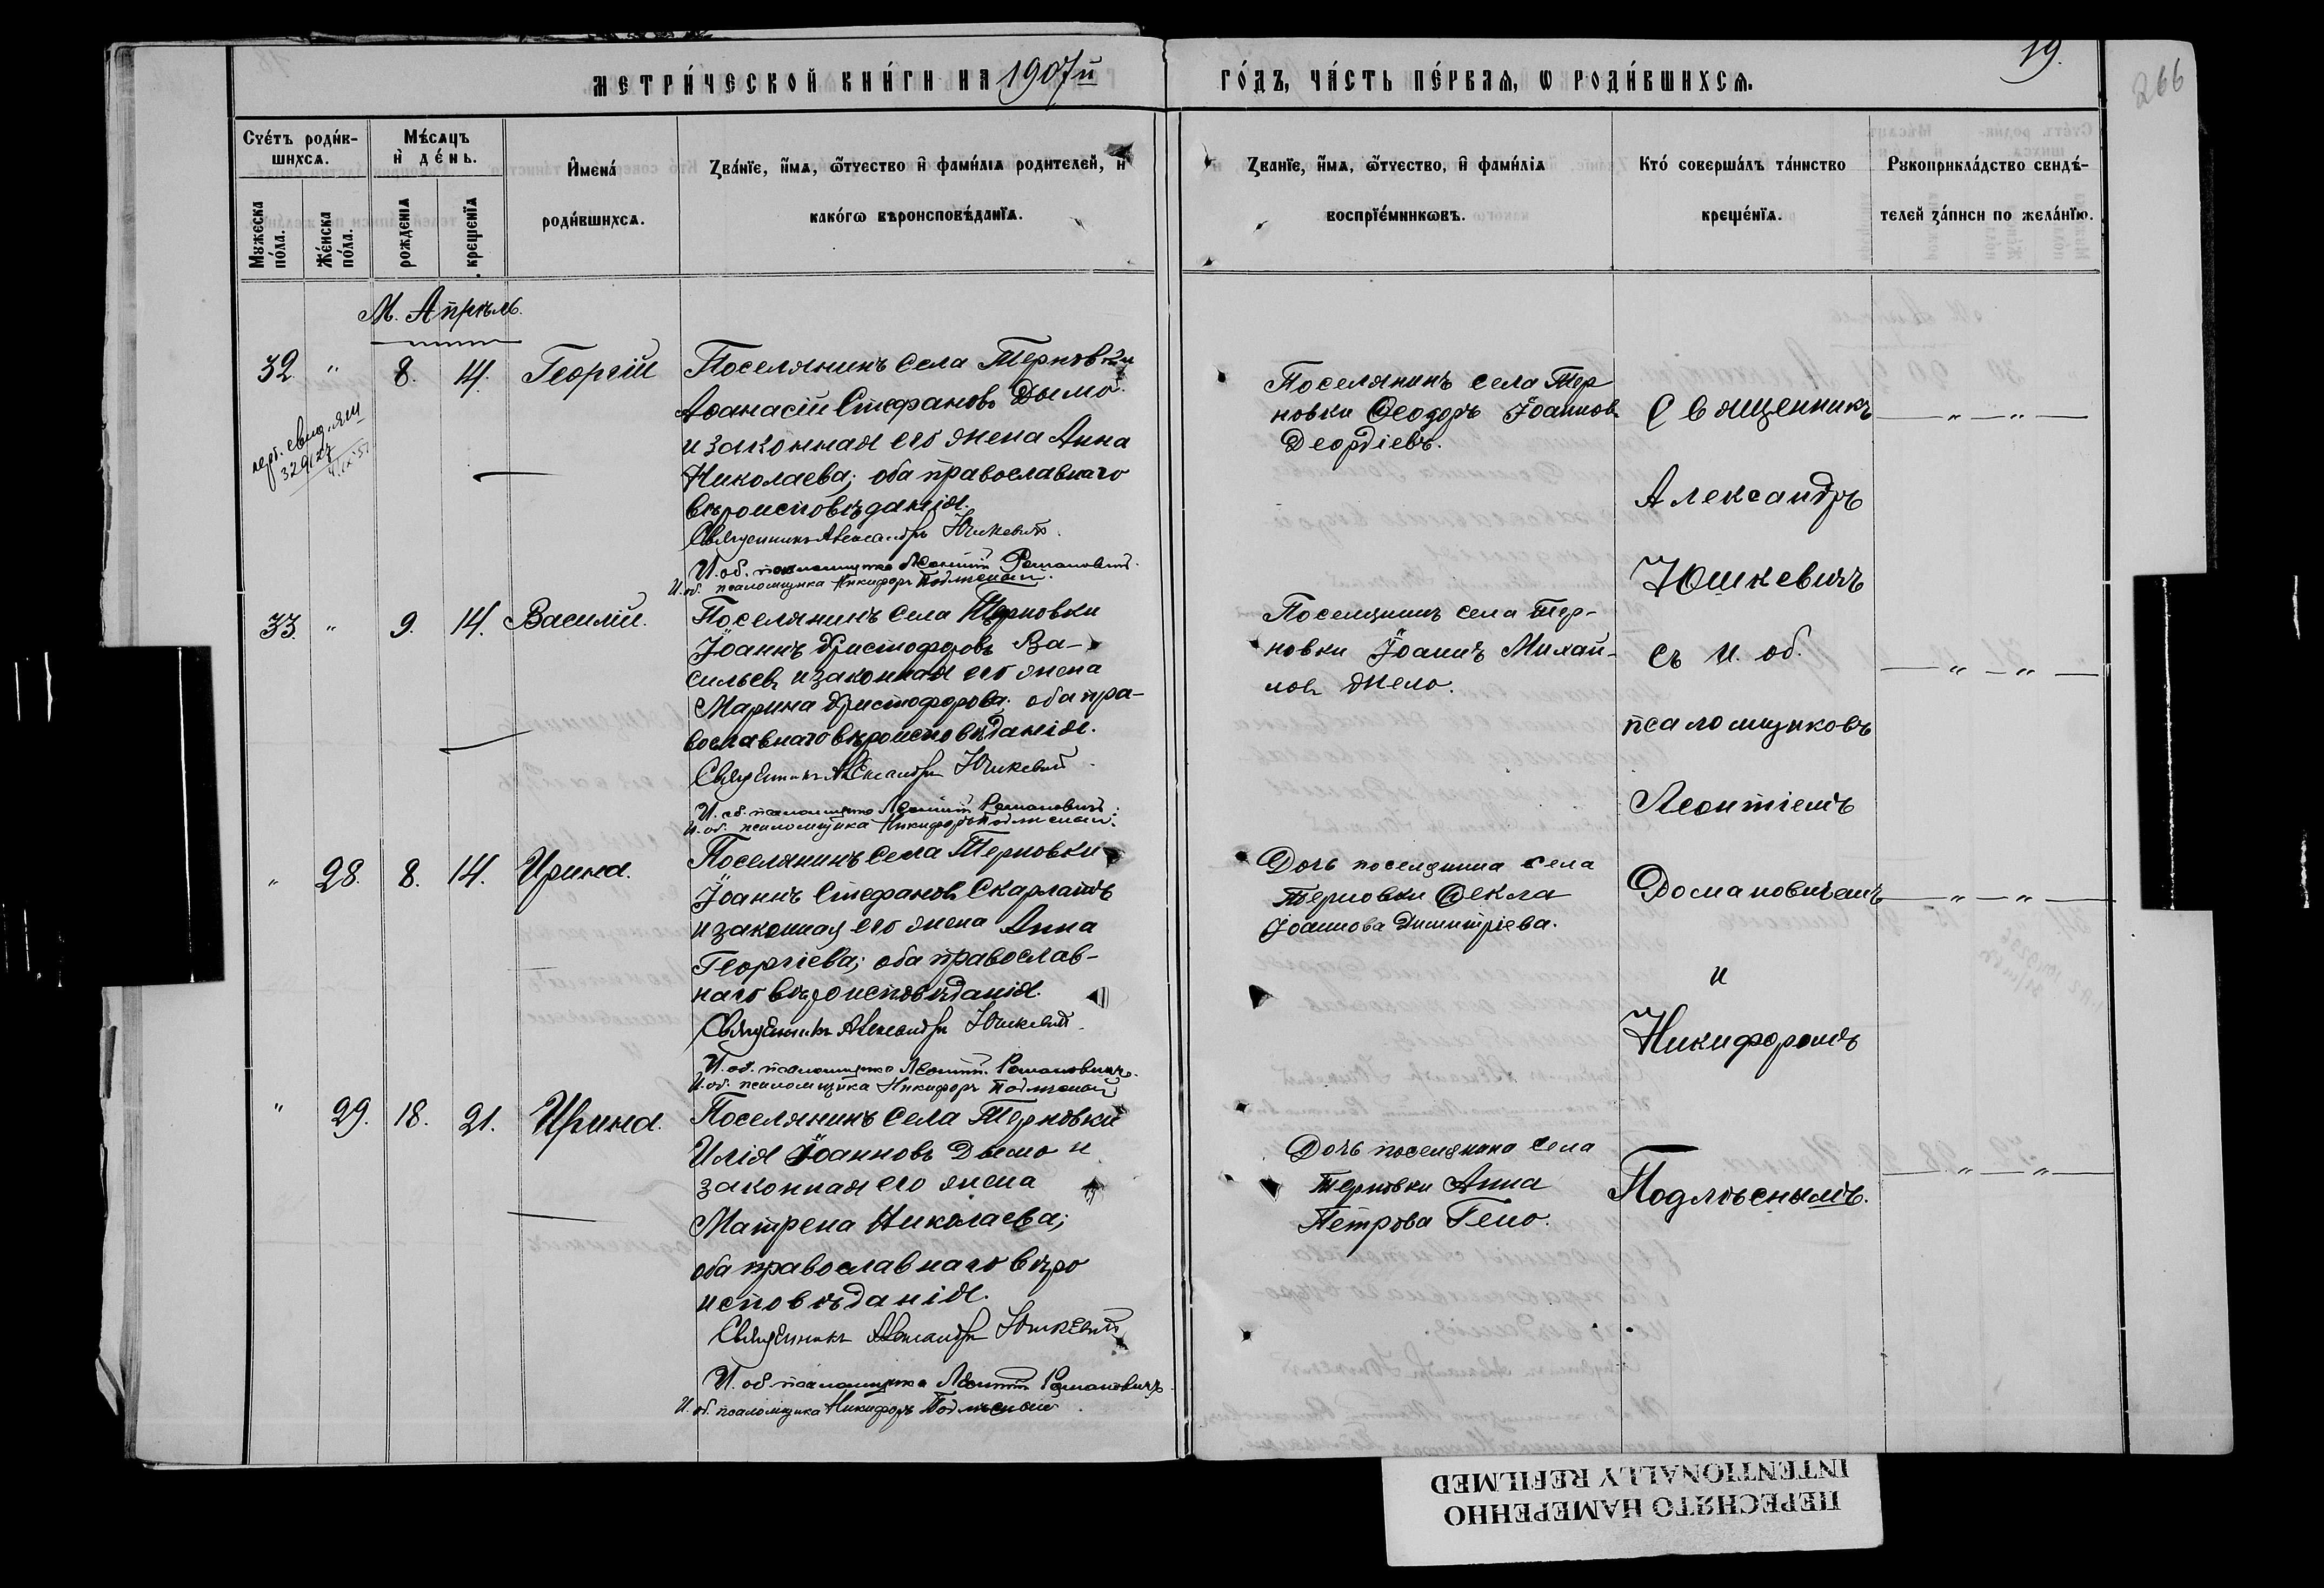 МЕТРИ́ЧЕСКОЙ КНИ́ГИ НА 1907й ГО́ДЪ, ЧА́СТЬ ПЕ́РВАЯ, Ѡ РОДИ́ВШИХСЯ.
19.
266
Сче́тъ роди́в-
шихся.
Мѣ́сяцъ
и де́нь.
Мужеска
по́ла.
Же́нска
по́ла.
рожденія
крещенїя
Имена́
роди́вшихся.
Зва́нїе, и́мя, ѻ҆́тчество и фами́лія родителей, и
како́гѡ вѣроисповѣ́данїя.
Зва́нїе, и́мя, ѻ҆́тчество, и фами́лїя
воспрїе́мникѡвъ.
Кто́ соверша́лъ та́инство
креще́нїя.
Рукоприкла́дство свидѣ́-
телей за́писи по жела́нїю.
М. Апрѣль.
32. " 8. 14. Георгій
Поселянинъ села Терновки
Аѳанасій Стефановъ Дымо
и законная его жена Анна
Николаева; оба православнаго
вѣроисповѣданія.
Священникъ Александръ Юшкевичъ.
И. об. псаломщика Леонтій Романовичъ.
И. об. псаломщика Никифоръ Подлѣсный.
Поселянинъ села Тер
новки Ѳеодоръ Іоаннов
Деордіевъ.
33. " 9. 14. Василій.
Поселянинъ села Терновки
Іоаннъ Христофоровъ Ва-
сильев и законная его жена
Марина Христофорова; оба пра-
вославнаго вѣроисповѣданія.
Священникъ Александръ Юшкевичъ
И. об. псаломщика Леонтій Романовичъ.
И. об. псаломщика Никифоръ Подлѣсный.
Поселянинъ села Тер-
новки Іоаннъ Михаи-
лов Жело.
" 28. 8. 14. Ирина.
Поселянинъ села Терновки
Іоаннъ Стефанов Скарлатъ
и законная его жена Анна
Георгіева; оба православ-
наго вѣроисповѣданія.
Священникъ Александръ Юшкевичъ.
И. об. псаломщика Леонтій Романовичъ.
И. об. псаломщика Никифоръ Подлѣсный
Дочь поселянина села
Терновки Ѳекла
Іоаннова Димитріева.
" 29. 18. 21. Ирина.
Поселянинъ села Терновки
Илія Іоанновъ Дымо и
законная его жена
Матрена Николаева;
оба православнаго вѣро
исповѣданія.
Священникъ Александръ Юшкевичъ
И. об. псаломщика Леонтій Романовичъ
И. об. псаломщика Никифоръ Подлѣсный.
Дочь поселянина села
Терновки Анна
Петрова Гено.
Священникъ
Александръ
Юшкевичъ
съ И. об.
псаломщиковъ
Леонтіемъ
Романовичемъ
и
Никифоромъ
Подлѣснымъ.
ПЕРЕСНЯТО НАМЕРЕННО
INTENTIONALLY REFILMED